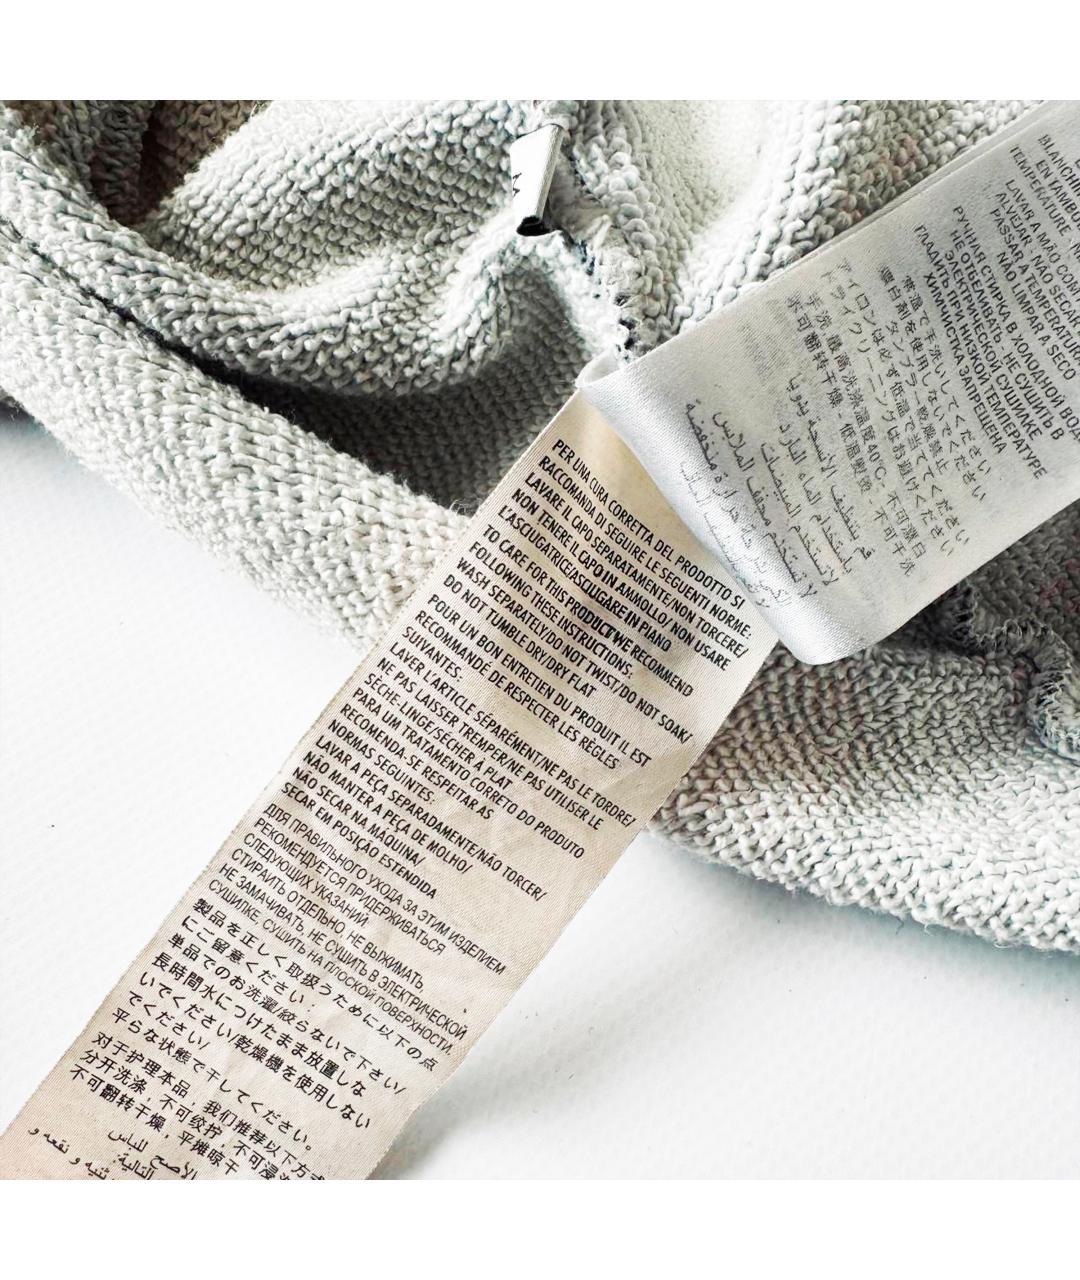 PER UNA CURA CORRETTA DEL PRODOTTO SI
RACCOMANDA DI SEGUIRE LE SEGUENTI NORME:
LAVARE IL CAPO SEPARATAMENTE/NON TORCERE/
NON TENERE IL CAPO IN AMMOLLO/ NON USARE
L'ASCIUGATRICE/ASCIUGARE IN PIANO
TO CARE FOR THIS PRODUCT WE RECOMMEND
FOLLOWING THESE INSTRUCTIONS:
WASH SEPARATELY/DO NOT TWIST/DO NOT SOAK/
DO NOT TUMBLE DRY/DRY FLAT
POUR UN BON ENTRETIEN DU PRODUIT IL EST
RECOMMANDÉ DE RESPECTER LES RÈGLES
SUIVANTES:
LAVER L'ARTICLE SÉPARÉMENT/NE PAS LE TORDRE/
NE PAS LAISSER TREMPER/NE PAS UTILISER LE
SÈCHE-LINGE/SÉCHER À PLAT
PARA UM TRATAMENTO CORRETO DO PRODUTO
RECOMENDA-SE RESPEITAR AS
NORMAS SEGUINTES:
LAVAR A PEÇA SEPARADAMENTE/NÃO TORCER/
NÃO MANTER A PEÇA DE MOLHO/
NÃO SECAR NA MÁQUINA/
SECAR EM POSIÇÃO ESTENDIDA
ДЛЯ ПРАВИЛЬНОГО УХОДА ЗА ЭТИМ ИЗДЕЛИЕМ
РЕКОМЕНДУЕТСЯ ПРИДЕРЖИВАТЬСЯ
СЛЕДУЮЩИХ УКАЗАНИЙ:
СТИРАТЬ ОТДЕЛЬНО, НЕ ВЫЖИМАТЬ,
НЕ ЗАМАЧИВАТЬ, НЕ СУШИТЬ В ЭЛЕКТРИЧЕСКОЙ
СУШИЛКЕ, СУШИТЬ НА ПЛОСКОЙ ПОВЕРХНОСТИ.
製品を正しく取扱うために以下の点
にご留意ください：
単品でのお洗濯/絞らないで下さい/
長時間水につけたまま放置しな
いでください/乾燥機を使用しない
でください/
平らな状態で干してください。
对于护理本品，我们推荐以下方式
分开洗涤，不可绞拧，不可浸
不可翻转干燥，平摊晾干
الأصح للباس
التالية:
نقعه و
BLANCHI
EN TAMBO
TEMPERATURE
LAVAR A MÃO COM
ALVEJAR - NÃO SECAR
PASSAR A TEMPERATURA
NÃO LIMPAR A SECO
РУЧНАЯ СТИРКА В ХОЛОДНОЙ ВОД
НЕ ОТБЕЛИВАТЬ - НЕ СУШИТЬ В
ЭЛЕКТРИЧЕСКОЙ СУШИЛКЕ
ГЛАДИТЬ ПРИ НИЗКОЙ ТЕМПЕРАТУРЕ
ХИМЧИСТКА ЗАПРЕЩЕНА
常温で手洗いしてください
漂白剤を使用しないでください
タンブラー乾燥禁止
アイロンは必ず低温で当ててください
ドライクリーニングはお避けください
手洗，最高洗涤温度40°C - 不可漂白
不可翻转干燥 - 低温熨烫 - 不可干洗